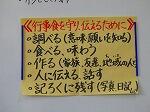 《行事食を守り、伝えるために》
・調べる(意味、願いを知る)
・食べる、味わう
・作る(家族、友達、地域の人と)
・人に伝える、話す
・記ろくに残す(写真、日記)